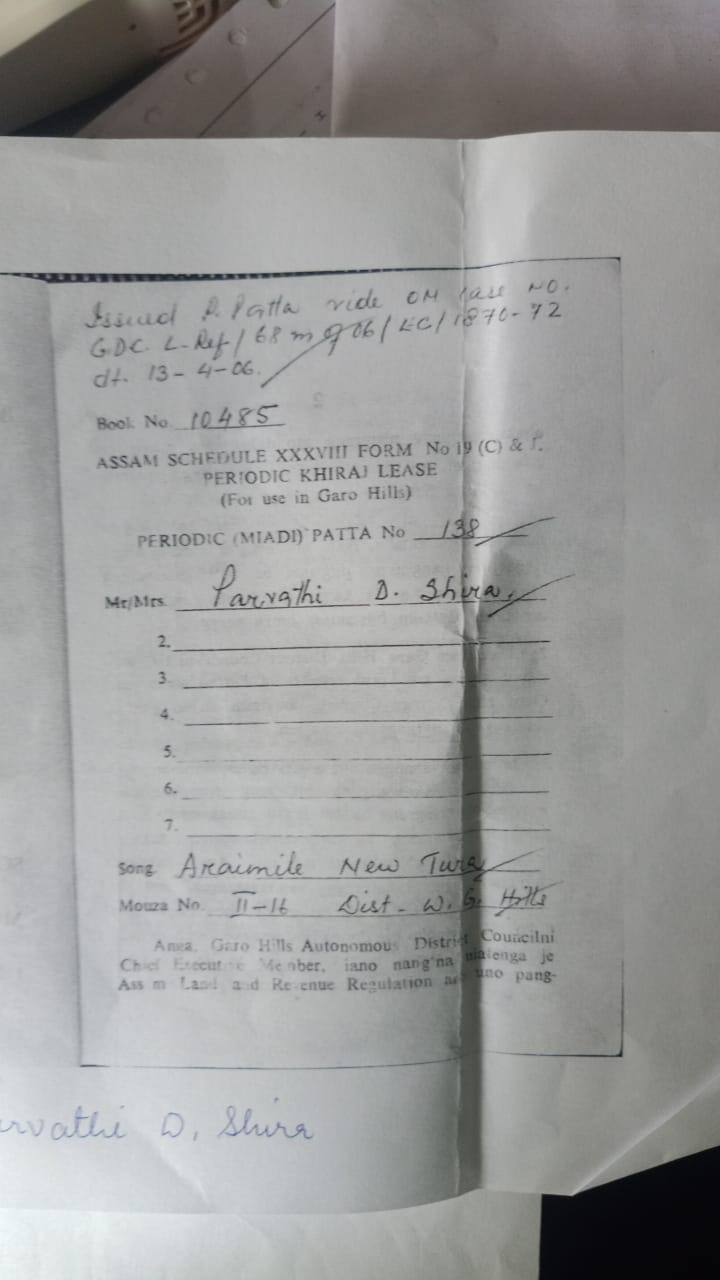 Issued P. Patta vide OM Case NO.
G.D.C. L-Ref/68 m of 06/LC/1870-72
dt. 13-4-06.
Book No 10485
ASSAM SCHEDULE XXXVIII FORM No 19 (C) &
PERIODIC KHIRAJ LEASE
(For use in Garo Hills)
PERIODIC (MIADI) PATTA No 138
Mr/Mrs. Parvathi D. Shira,
2.
3.
4.
5.
6.
7.
Song Araimile New Tura
Mouza No. II-16 Dist- W. G. Hills
Anga, Garo Hills Autonomous District Councilni
Chief Executive Member, iano nang'na je
Assam Land and Revenue Regulation pang-
D. Shira